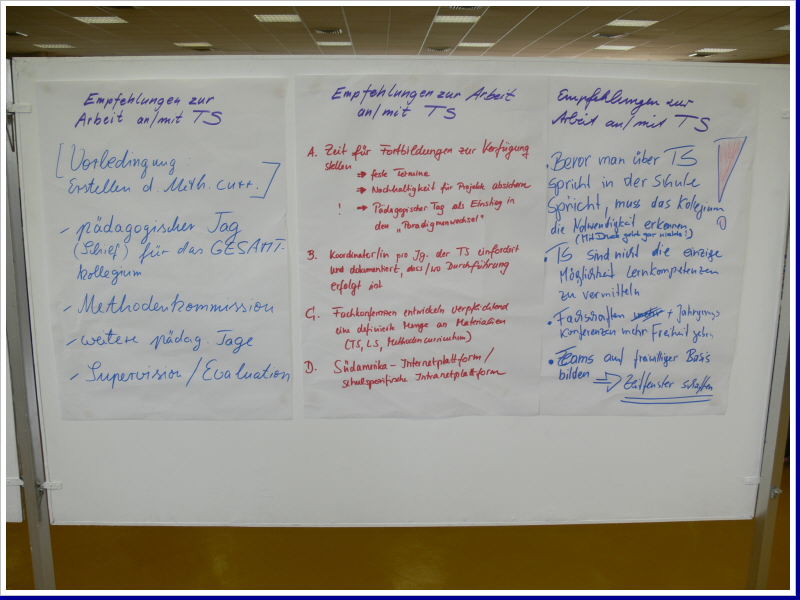 Empfehlungen zur
Arbeit an/mit TS
[Vorbedingung:
Erstellen d. Meth. curr.]
- pädagogischer Tag
(Schief) für das GESAMT-
kollegium
- Methodenkommission
- weitere pädag. Tage
- Supervision/Evaluation
Empfehlungen zur Arbeit
an/mit TS
A. Zeit für Fortbildungen zur Verfügung
stellen
⇒ feste Termine
⇒ Nachhaltigkeit für Projekte absichern
! → Pädagogischer Tag als Einstieg in
den "Paradigmenwechsel"
B. Koordinator/in pro Jg. der TS einfordert
und dokumentiert, dass/wo Durchführung
erfolgt ist
C. Fachkonferenzen entwickeln verpflichtend
eine definierte Menge an Materialien
(TS, LS, Methodencurriculum)
D. Südamerika-Internetplattform/
schulspezifische Intranetplattform
Empfehlungen zur
Arbeit an/mit TS
• Bevor man über TS
spricht in der Schule
spricht, muss das Kollegium
die Notwendigkeit erkennen
(Mit Druck geht gar nichts!)
• TS sind nicht die einzige
Möglichkeit Lernkompetenzen
zu vermitteln
• Fachschaften + Jahrgangs
Konferenzen mehr Freiheit geben
• Teams auf freiwilliger Basis
bilden ⇒ Zeitfenster schaffen
!